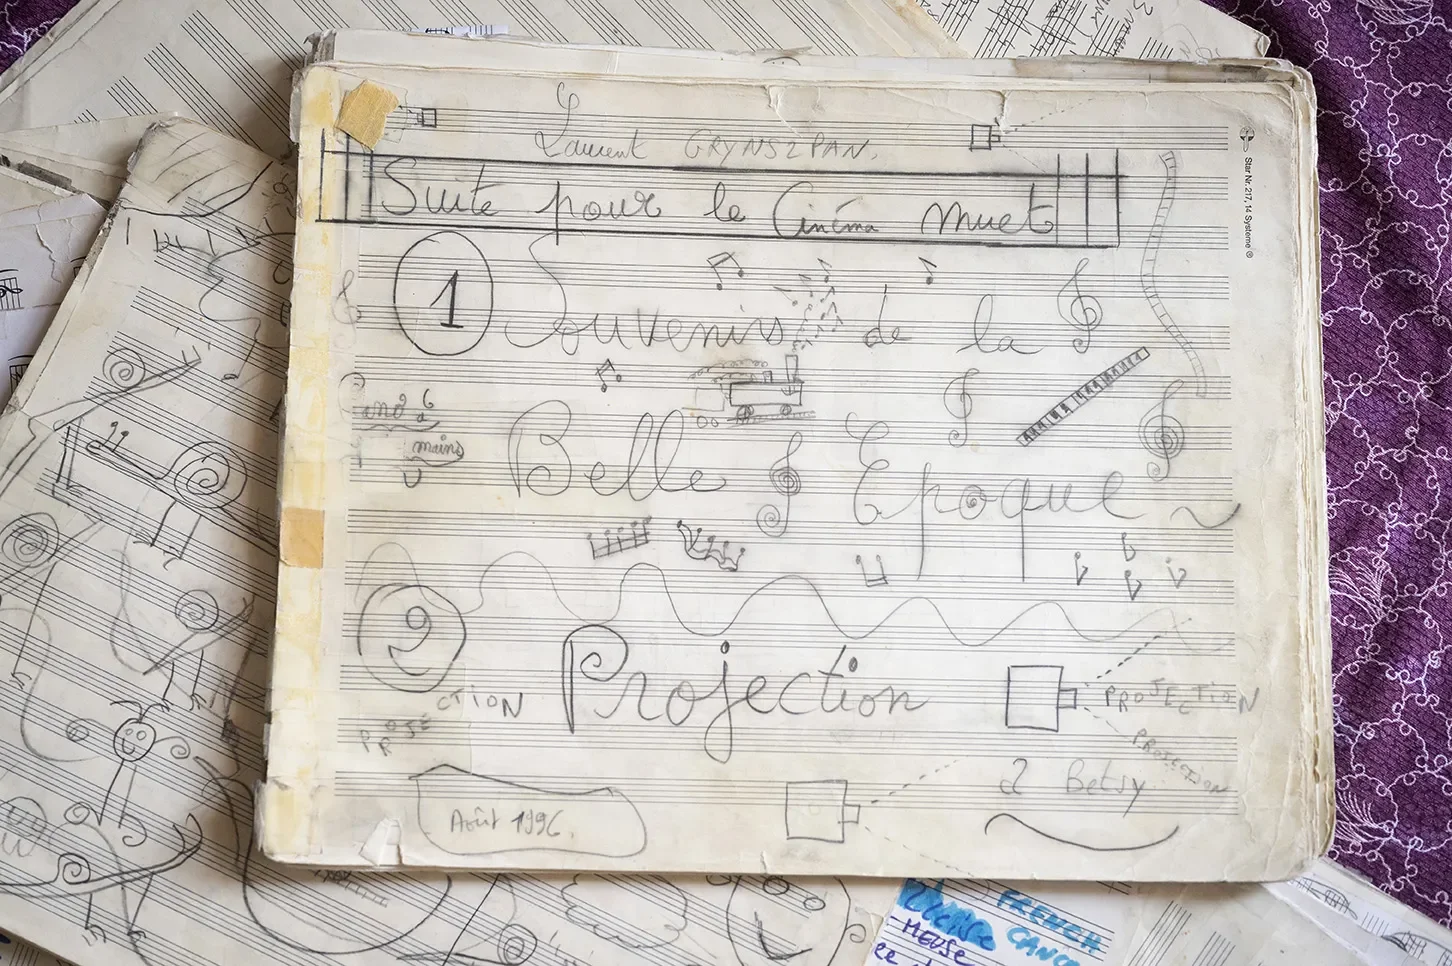 Laurent GRYNSZPAN.
Suite pour le Cinéma Muet
1 Souvenirs de la
Belle Epoque
mains
2 Projection
PROJECTION
PROJECTION
PROJECTION
à Betsy
Août 1996.
Star Nr. 217, 14 Systeme ®
FRENCH
CANCA
MEUSE